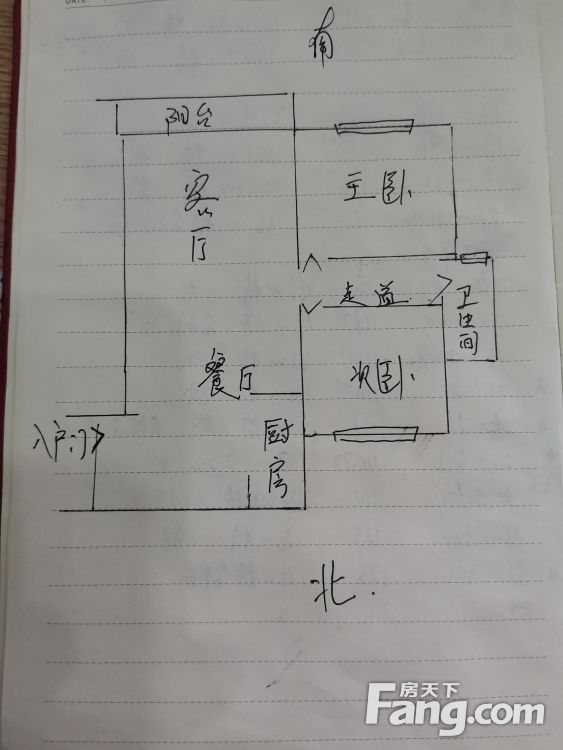 DATE:
南
阳台
客厅
主卧
走道
卫生间
餐厅
次卧
入户门
厨房
北.
房天下
Fang.com